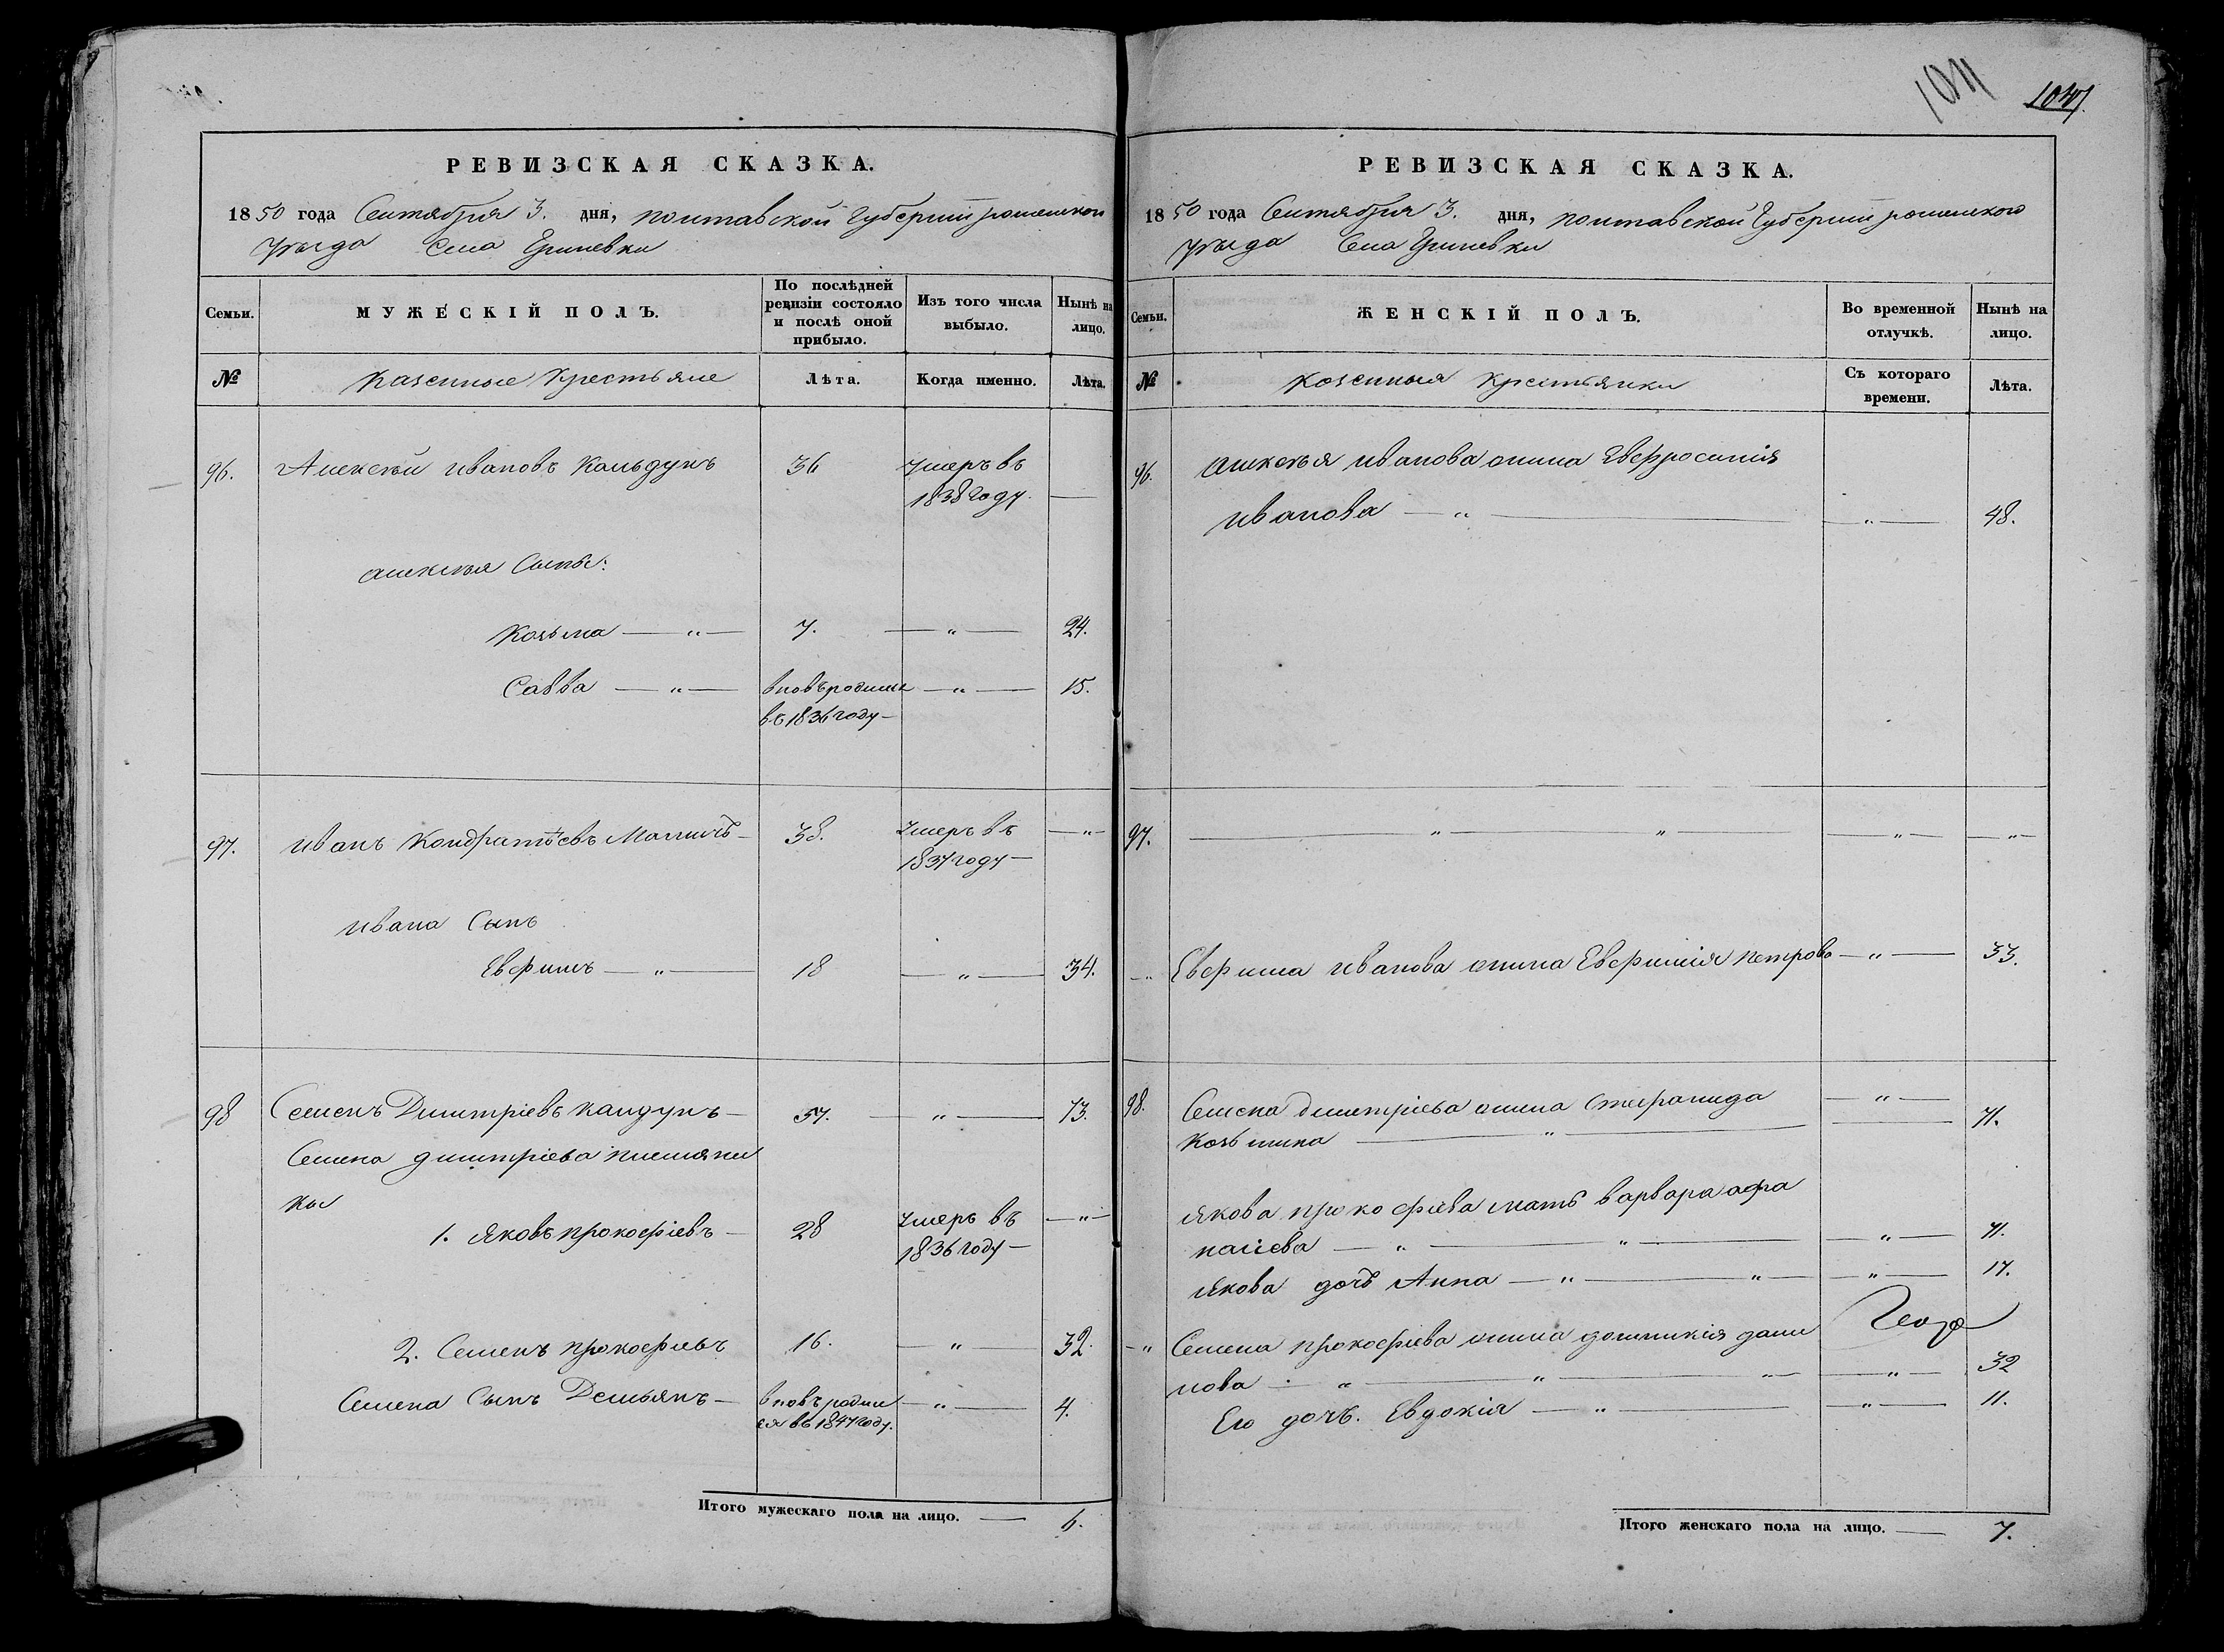 1041
1047.
РЕВИЗСКАЯ СКАЗКА.
1850 года Сентября 3. дня, полтавской Губернии роменскои
уѣзда Села Гриневки
Семьи.
МУЖЕСКІЙ ПОЛЪ.
По послѣдней
ревизіи состояло
и послѣ оной
прибыло.
Изъ того числа
выбыло.
Нынѣ на
лицо.
№
казенные крестьяне
Лѣта.
Когда именно.
Лѣта.
96. Алексѣй ивановъ Кольдунъ 36 умеръ въ
1838 году. —
алексѣя Сыны:
козьма — „ — 7. — „ — 24.
Савва — „ — вновьродился — „ — 15.
въ 1836 году —
97. иванъ Кондратѣевъ 38. умеръ въ — „ —
1837 году —
ивана Сынъ
Евфимъ — „ — 18 — „ — 34.
98 Семенъ Димитріевъ калдунъ — 57. — „ — 73.
Семена димитріева племянни
ки
1. яковъ прокофіевъ — 28 умеръ въ — „ —
1836 году —
2. Семенъ прокофіевъ 16. — „ — 32.
Семена Сынъ Демьянъ — вновь родил — „ — 4.
ся въ 1847 году.
Итого мужескаго пола на лицо. — 6.
РЕВИЗСКАЯ СКАЗКА.
1850 года Сентября 3. дня, полтавской Губернии роменскаго
уѣзда Села Гриневки
Семьи.
ЖЕНСКІЙ ПОЛЪ.
Во временной
отлучкѣ.
Нынѣ на
лицо.
№
казенныя крестьянки
Съ котораго
времени.
Лѣта.
96. алексѣя иванова жина Евфросинія
иванова — „ — — „ — 48.
97. — „ — „ — — „ — — „ —
— „ Евфима иванова жина Евфимія петрова — „ — 33.
98. Семена димитріева жина Стефанида — „ —
козьмина — „ — — 71.
якова прокофіева мать варвара афа
насіева — „ — „ — — „ — 71.
якова дочь Анна — „ — „ — — „ — 17.
— „ Семена прокофіева жина домникія дани
лова — „ — „ — „ — — „ — 32
Его дочь. Евдокія — „ — — „ — 11.
Итого женскаго пола на лицо. — 7.